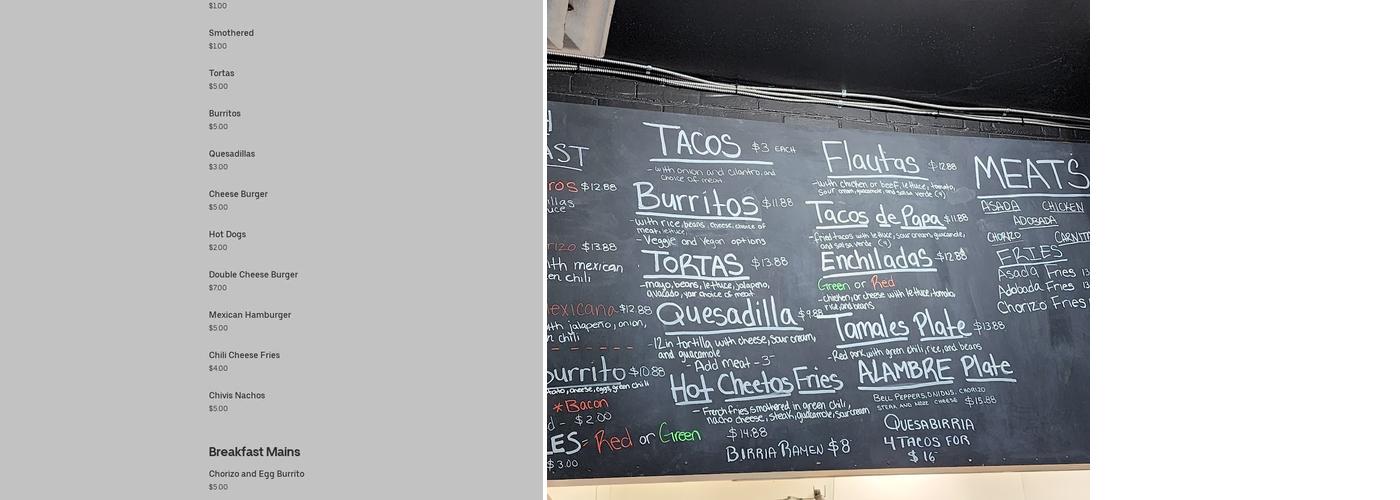 $1.00
Smothered
$1.00
Tortas
$5.00
Burritos
$5.00
Quesadillas
$3.00
Cheese Burger
$5.00
Hot Dogs
$2.00
Double Cheese Burger
$7.00
Mexican Hamburger
$5.00
Chili Cheese Fries
$4.00
Chivis Nachos
$5.00
Breakfast Mains
Chorizo and Egg Burrito
$5.00
AST
ROS $12.88
illas
uce
rizo $13.88
ith mexican
en chili
exicana $12.88
ith jalapeño, onion,
n chili
urrito $10.88
tato, cheese, eggs, green chili
* Bacon
d - $2.00
LES - Red or Green
$3.00
TACOS $3 EACH
- with onion and cilantro, and
choice of meat.
Burritos $11.88
- with rice, beans, cheese, choice of
meat, lettuce,
- Veggie and Vegan options
TORTAS $13.88
- mayo, beans, lettuce, jalapeno,
avacado, your choice of meat
Quesadilla $9.88
- 12in tortilla with cheese, sour cream,
and guacamole
- Add meat - 3-
Hot Cheetos Fries
- French fries smothered in green chili,
nacho cheese, steak, guacamole, sour cream
$14.88
BIRRIA RAMEN $8
Flautas $12.88
- with chicken or beef, lettuce, tomato,
sour cream, guacamole, and salsa verde (4)
Tacos de Papa $11.88
- fried tacos with lettuce, sour cream, guacamole,
and salsa verde (4)
Enchiladas $12.88
Green or Red
- chicken, or cheese with lettuce, tomato,
rice, and beans
Tamales Plate $13.88
- Red pork with green chili, rice, and beans
ALAMBRE Plate
BELL PEPPERS, ONIONS, CHORIZO
STEAK AND CHEESE $15.88
QUESABIRRIA
4 TACOS FOR
$16
MEATS
ASADA CHICKEN
ADOBADA
CHORIZO CARNIT
FRIES
Asada Fries 13
Adobada Fries 13
Chorizo Fries